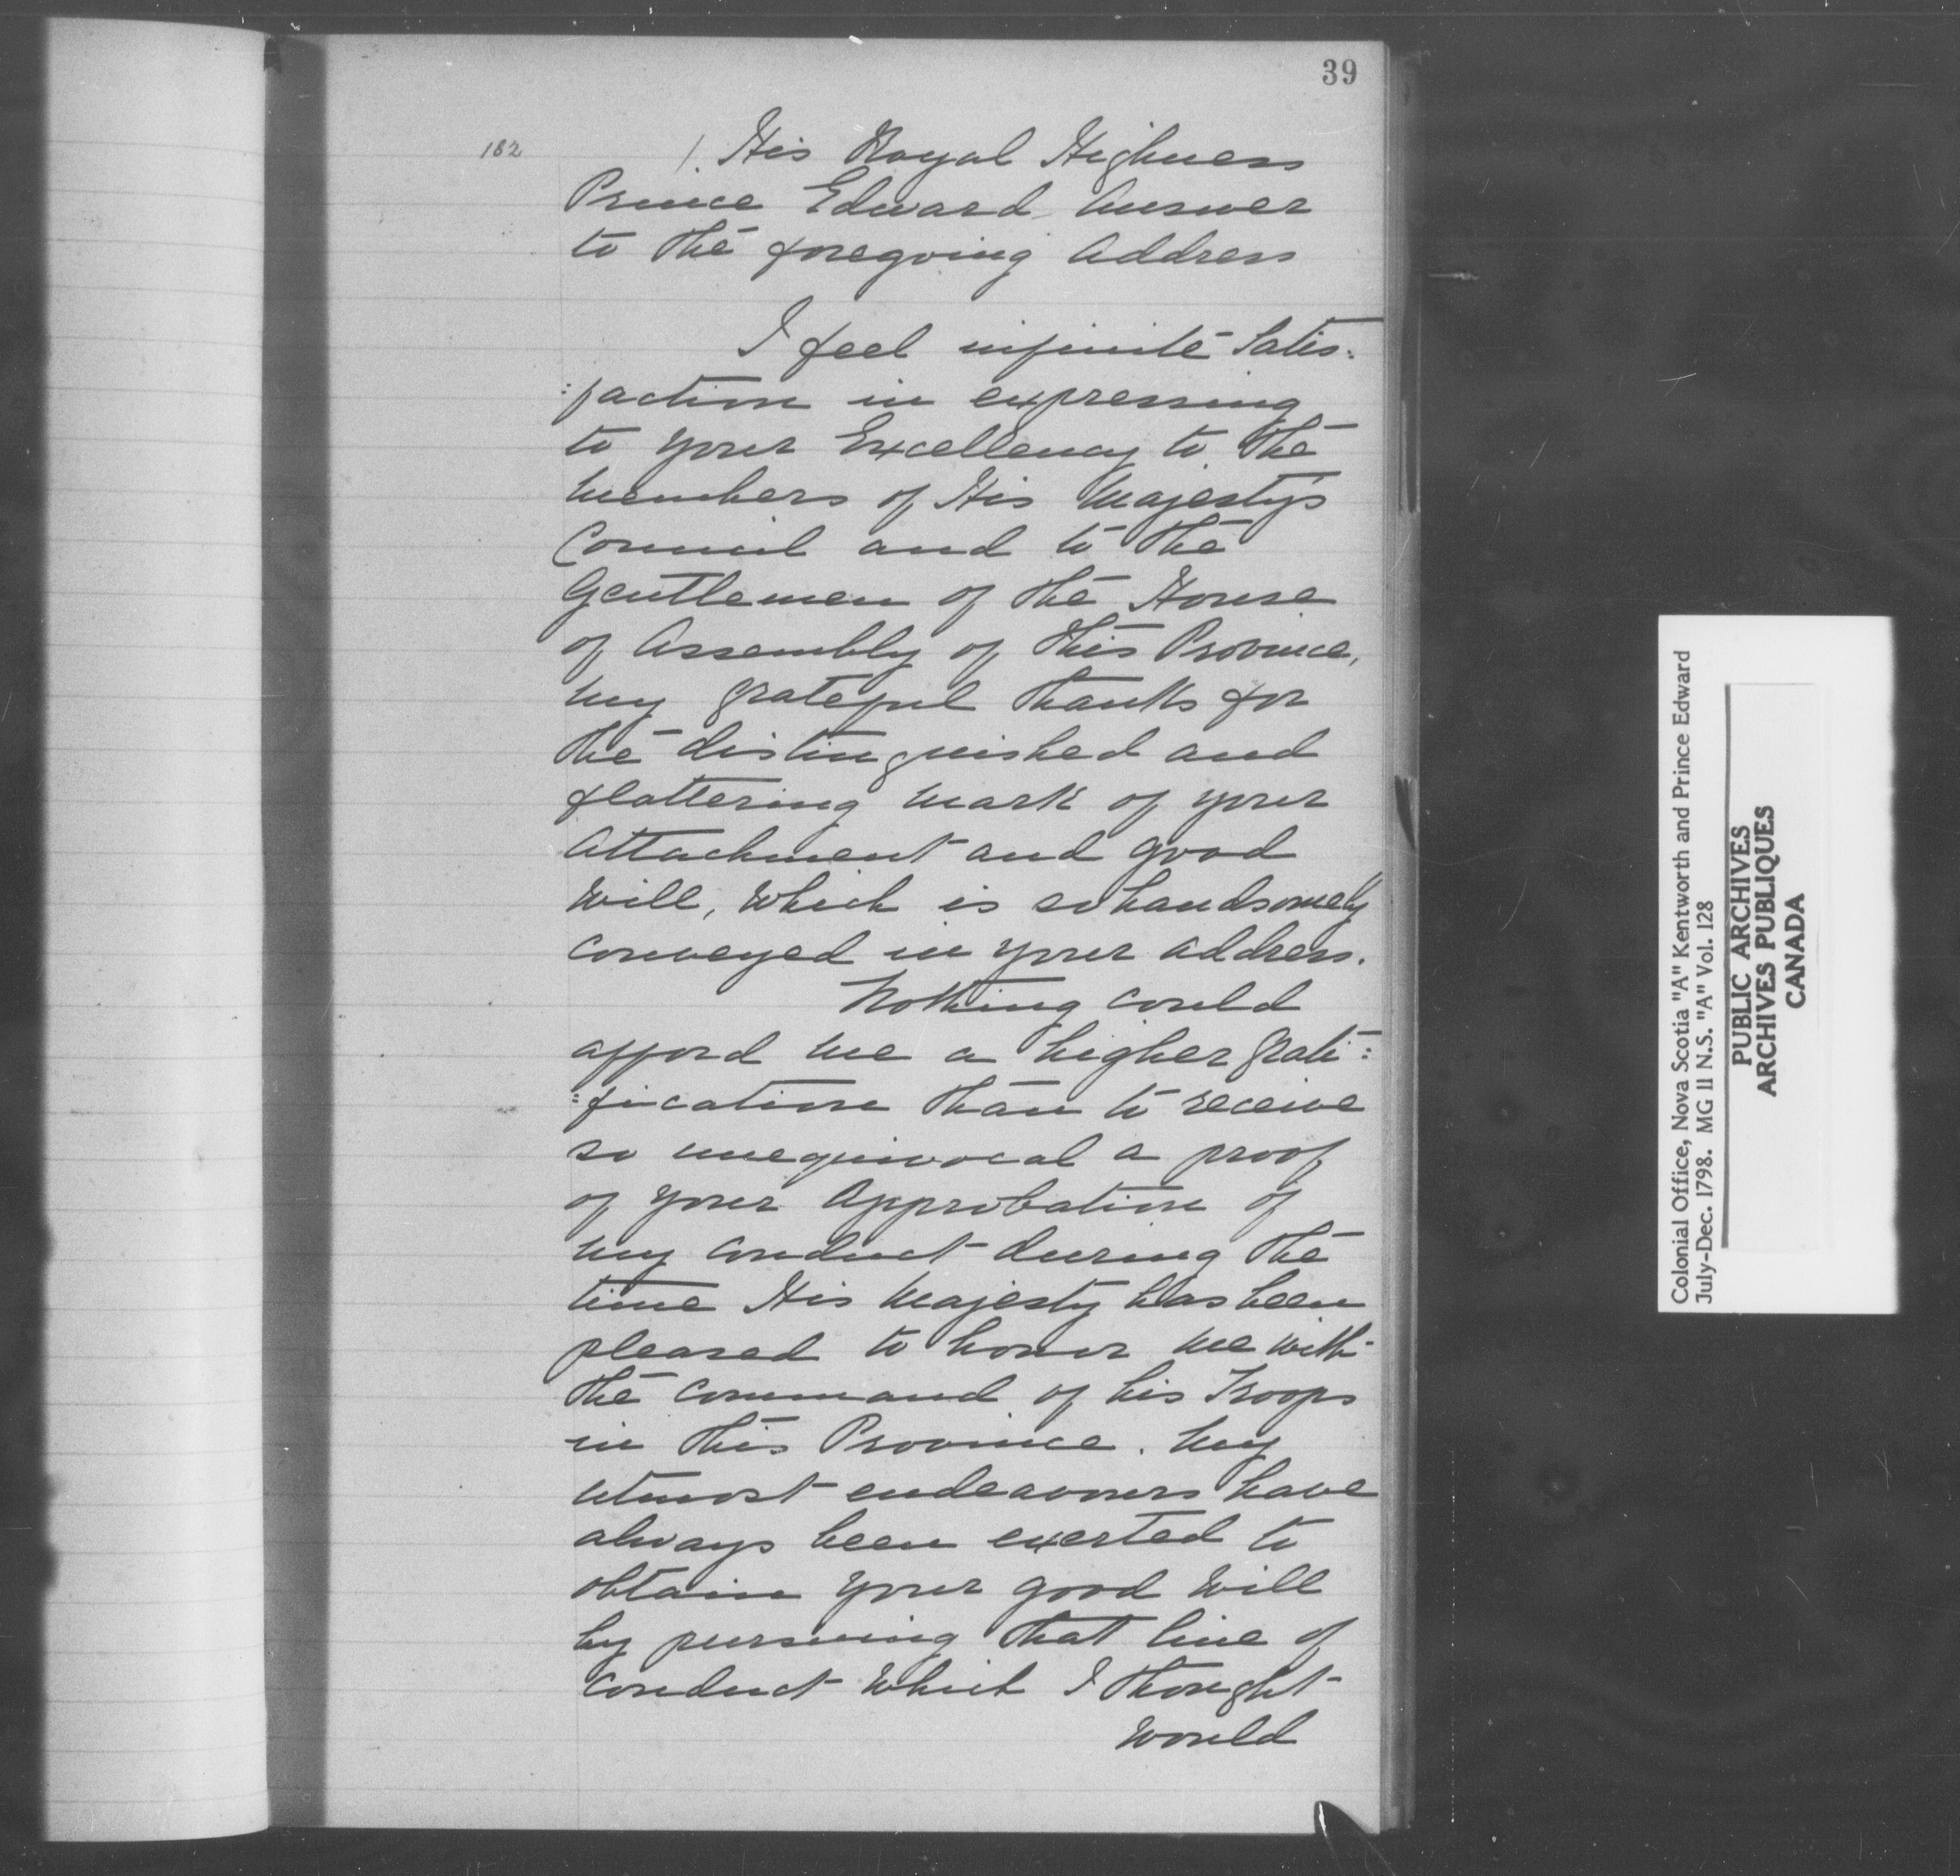 39
182
/ His Royal Highness
Prince Edward Answer
to the foregoing Address
I feel infinite Satis:
:faction in expressing
to your Excellency to the
Members of His Majesty's
Council and to the
Gentlemen of the House
of Assembly of this Province,
my grateful thanks for
the distinguished and
flattering mark of your
Attachment and good
Will, which is so handsomely
conveyed in your address.
Nothing could
afford me a higher grati:
:fication than to receive
so unequivocal a proof
of your Approbation of
my conduct during the
time His Majesty has been
pleased to honor me with
the command of his Troops
in this Province. My
utmost endeavours have
always been exerted to
obtain your good will
by pursuing that line of
conduct which I thought
would
Colonial Office, Nova Scotia "A" Kentworth and Prince Edward
July-Dec. 1798. MG 11 N.S. "A" Vol. 128
PUBLIC ARCHIVES
ARCHIVES PUBLIQUES
CANADA